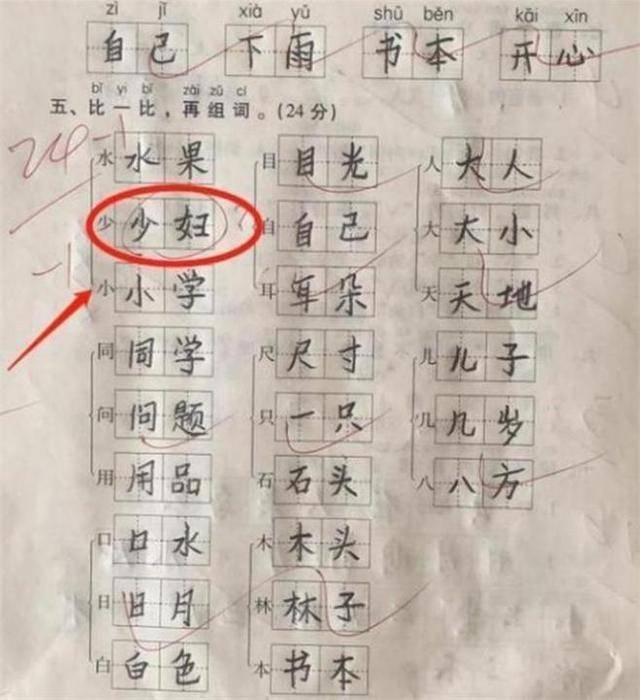 zì jǐ xià yǔ shū běn kāi xīn
自己 下雨 书本 开心
bǐ yi bǐ zài zǔ cí
五、比一比，再组词。(24分)
24-1
水 水果 目 目光 人 大人
少 少妇 自 自己 大 大小
-1
小 小学 耳 耳朵 天 天地
同 同学 尺 尺寸 儿 儿子
问 问题 只 一只 几 几岁
用 用品 石 石头 八 八方
口 口水 木 木头
日 日月 林 林子
白 白色 本 书本